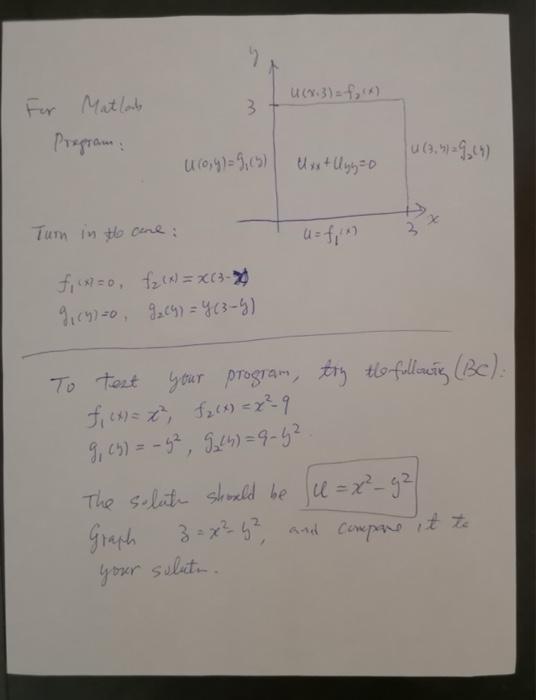 y
u(x,3)=f₂(x)
For Matlab
3
Program:
u(0,y)=g₁(y)
Uxx+Uyy=0
u(3,y)=g₂(y)
x
Turn in the case:
u=f₁(x)
3
f₁(x)=0, f₂(x)=x(3-x)
g₁(y)=0, g₂(y)=y(3-y)
To test your program, try the following (BC):
f₁(x)=x², f₂(x)=x²-9
g₁(y)=-y², g₂(y)=9-y².
The solutn should be u=x²-y²
Graph z=x²-y², and compare it to
your solutn.